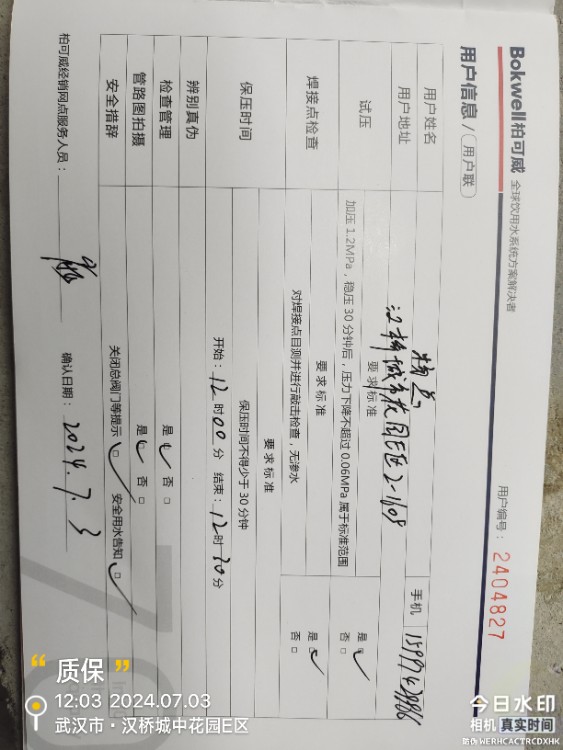 Bokwell 柏可威 全球饮用水系统方案解决者
用户编号：2404827
用户信息 / 用户联
用户姓名 手机
用户地址 2-1108
要求标准
试压 加压 1.2MPa，稳压 30 分钟后，压力下降不超过 0.06MPa 属于标准范围 是 □ 否 □
要求标准
焊接点检查 对焊接点目测并进行敲击检查，无渗水 是 □ 否 □
要求标准
保压时间 保压时间不得少于 30 分钟
开始：12 时 00 分 结束：12 时 30 分
辨别真伪
检查管理 是 □ 否 □
管路图拍摄 是 □ 否 □
安全措辞 关闭总阀门等提示 □ 安全用水告知 □
柏可威经销网点服务人员： 确认日期：2024.7.3
“质保”
12:03 2024.07.03
武汉市·汉桥城中花园E区
今日水印
相机 真实时间
防伪 WERHCACTRCDXHK